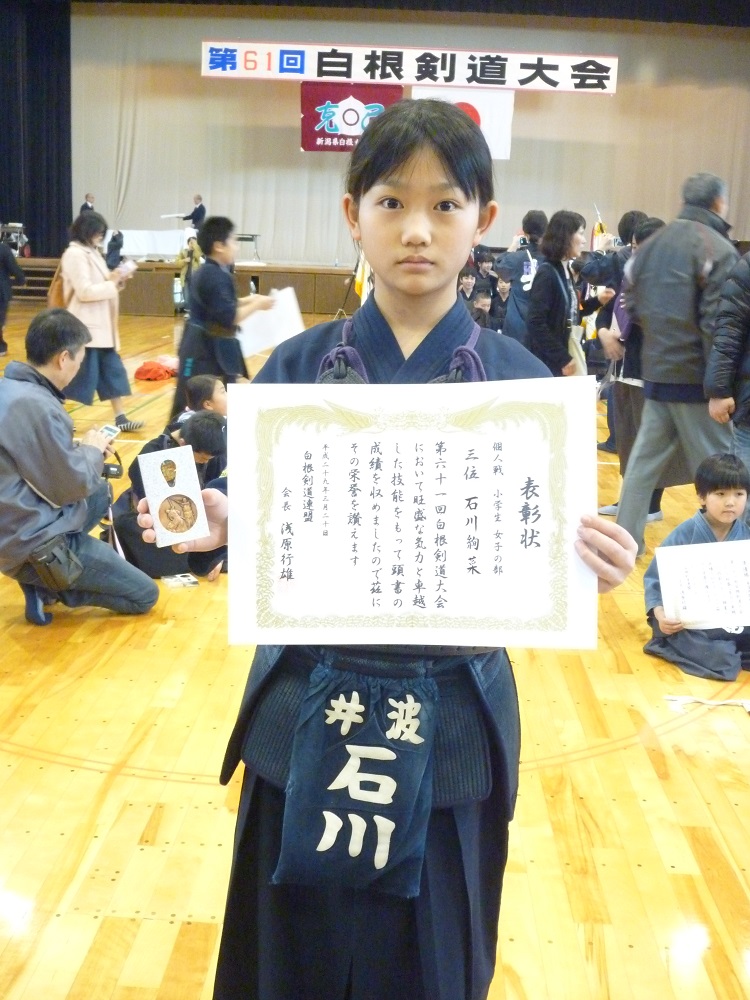 第61回 白根剣道大会
克己
新潟県白根
表彰状
個人戦 小学生 女子の部
三位 石川絢菜
第六十一回白根剣道大会
において旺盛な気力と卓越
した技能をもって頭書の
成績を収めましたので茲に
その栄誉を讃えます
平成二十九年三月二十日
白根剣道連盟
会長 浅原行雄
井波
石川